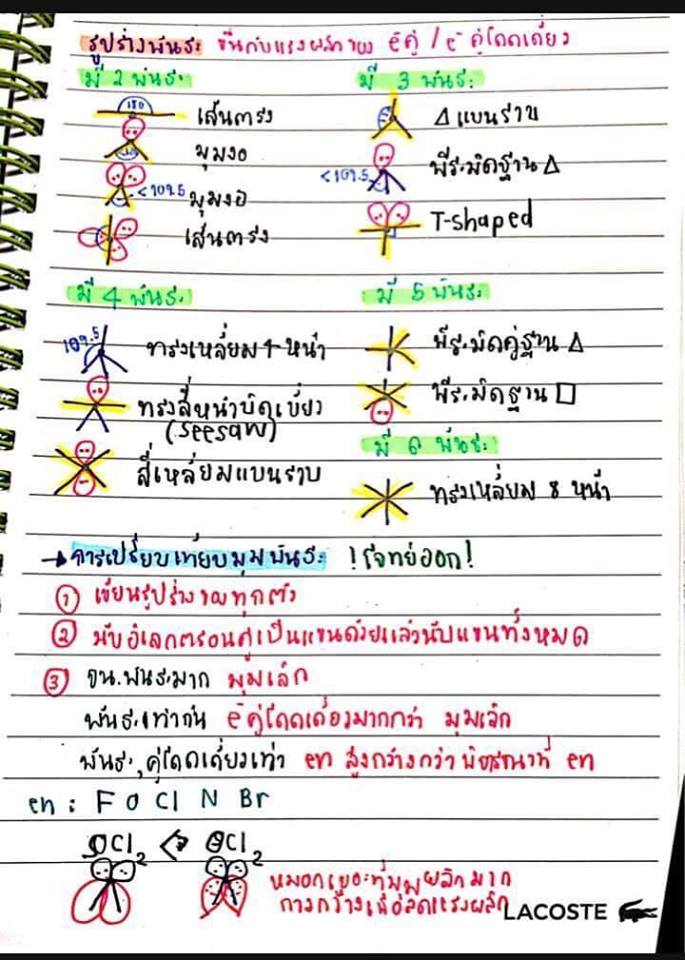 รูปร่างพันธะ ขึ้นกับแรงผลักของ e⁻คู่ / e⁻ คู่โดดเดี่ยว
มี 2 พันธะ
มี 3 พันธะ
180 เส้นตรง
△ แบนราบ
มุมงอ
<109.5 พีระมิดฐาน △
<109.5 มุมงอ
T-shaped
เส้นตรง
มี 4 พันธะ
มี 5 พันธะ
109.5 ทรงเหลี่ยม 4 หน้า
พีระมิดคู่ฐาน △
ทรงสี่หน้าบิดเบี้ยว
(seesaw)
พีระมิดฐาน □
มี 6 พันธะ
สี่เหลี่ยมแบนราบ
ทรงเหลี่ยม 8 หน้า
→ การเปรียบเทียบมุมพันธะ !โจทย์ออก!
① เขียนรูปร่าง ทุกตัว
② นับอิเลกตรอนคู่เป็นแขนด้วยแล้วนับแขนทั้งหมด
③ จน.พันธะมาก มุมเล็ก
พันธะเท่ากัน e⁻ คู่โดดเดี่ยวมากกว่า มุมเล็ก
พันธะ, คู่โดดเดี่ยวเท่า en สูงกว้างกว่า พิจารณาที่ en
en : F O Cl N Br
Cl₂ <> Cl₂
หมอกเยอะที่มุมผลักมาก
กางกว้างเพื่อลดแรงผลัก
LACOSTE